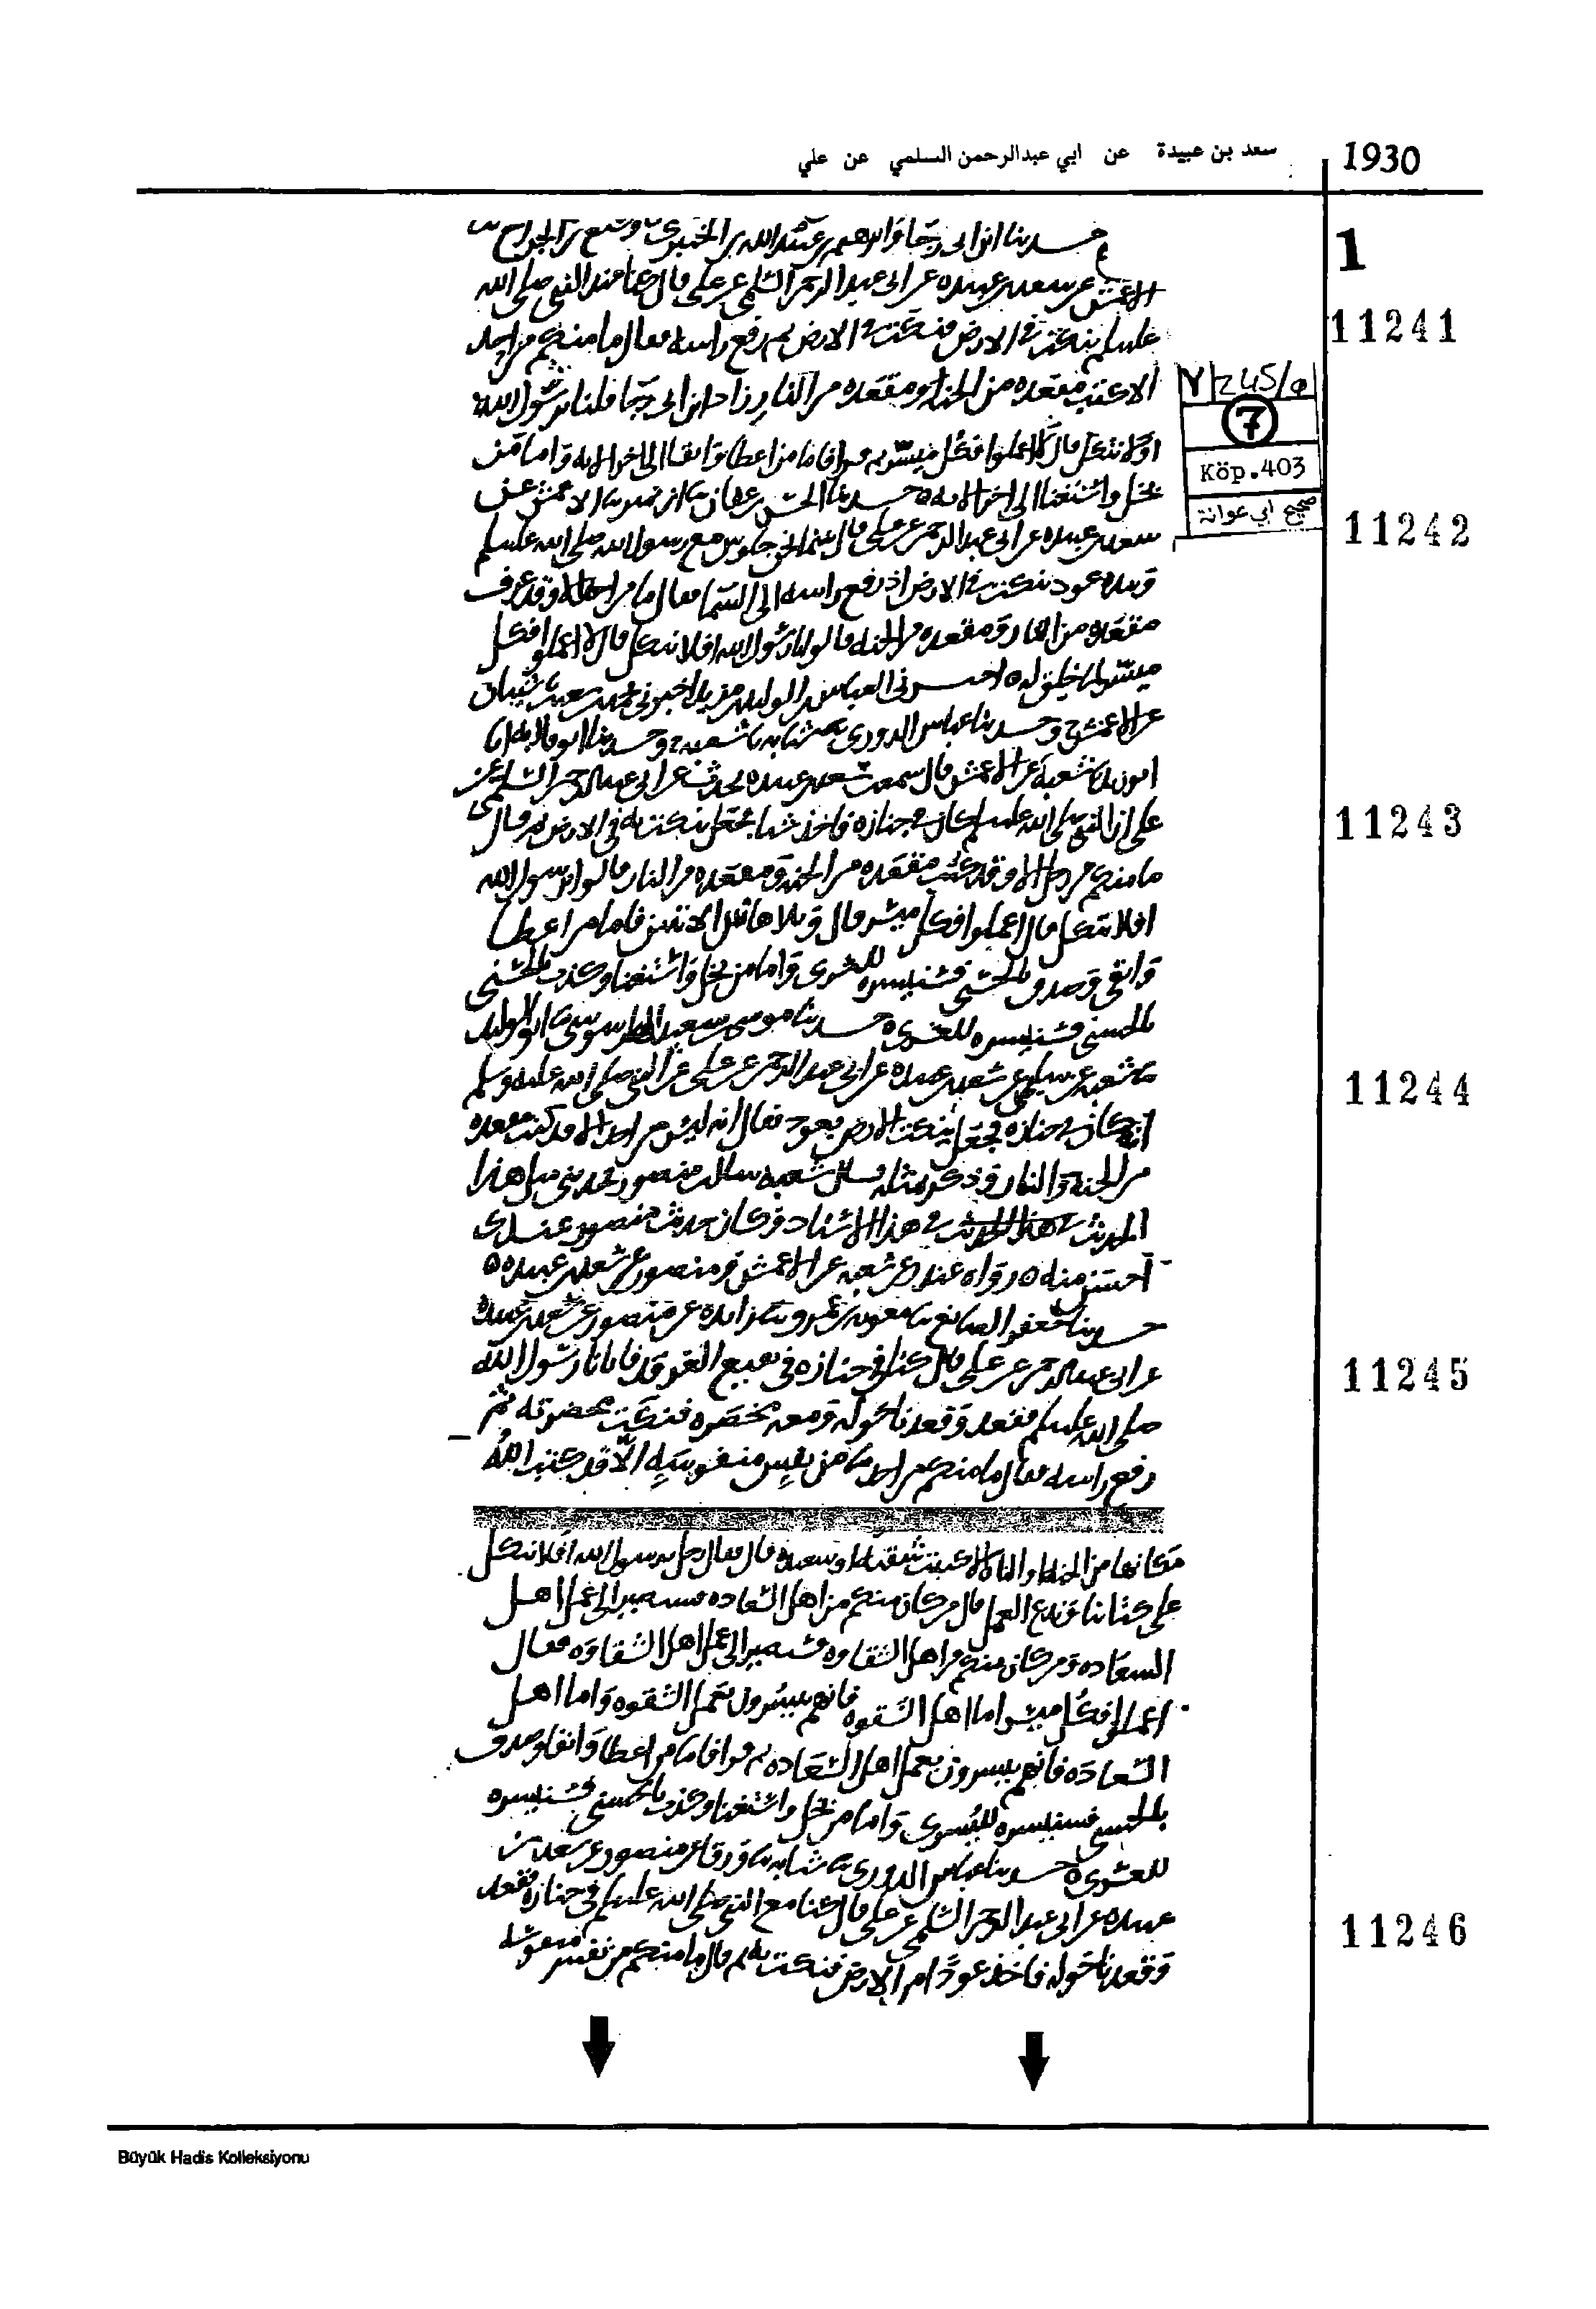 سعد بن عبيدة عن ابي عبدالرحمن السلمي عن علي
1930
1
حدثنا ابن ابى رجا وابرهيم بن عبد الله بن الخيبرى وكيع بن الجراح
الاعمش عن سعد بن عبيده عن ابى عبد الرحمن السلمى عن على قال كنا عند النبى صلى الله
11241
عليه وسلم ينكت فى الارض فنكت فى الارض ثم رفع راسه فقال ما منكم من احد
الا كتب مقعده من الجنه او مقعده من النار زاد ابن ابى رجا قلنا يرسول الله
7
اولا نتكل قال لا اعملوا فكل ميسر ثم قرا فاما من اعطا واتقا الى اخر الايه واما من
Köp.403
صحيح ابي عوانة
بخل واستغنا الى اخر الايه حدثنا الحسن بن عفان الاعمش عن
11242
سعد بن عبيده عن ابى عبد الرحمن عن على قال بينما نحن جلوس مع رسول الله صلى الله عليه وسلم
وبيده عود ينكت فى الارض اذ رفع راسه الى السما فقال ما من احد الا وقد عرف
مقعده من النار ومقعده من الجنه قالوا يا رسول الله افلا نتكل قال لا اعملوا فكل
ميسر لما خلق له اخبرنى العباس بن الوليد بن مزيد اخبرنى محمد بن شعيب شيبان
عن الاعمش ح وحدثنا عباس الدورى شبابه شعبه ح وحدثنا ابو قلابه
شعبة عن الاعمش قال سمعت سعد بن عبيده يحدث عن ابى عبد الرحمن السلمى عن
11243
على ان النبى صلى الله عليه وسلم كان فى جنازه فاخذ شيا فجعل ينكت به فى الارض ثم قال
ما منكم من رجل الا وقد كتب مقعده من الجنه ومقعده من النار قالوا يرسول الله
افلا نتكل قال اعملوا فكل ميسر قال وتلا هاتين الايتين فاما من اعطا
واتقى وصدق بالحسنى فسنيسره لليسرى واما من بخل واستغنا وكذب بالحسنى
بالحسنى فسنيسره للعسرى حدثنا موسى بن سعيد الطرسوسى ابو الوليد
11244
شعبه عن سليمن عن سعد بن عبيده عن ابى عبد الرحمن عن على عن النبى صلى الله عليه وسلم
انه كان فى جنازه فجعل ينكت الارض بعود فقال انه ليس من احد الا قد كتب مقعده
من الجنة والنار وذكر مثله قال شعبه سالت منصور فحدثنى مثل هذا
الحديث فى هذا الاسناد وكان حديث منصور عندى
احسن منه رواه غندر عن شعبه عن الاعمش ومنصور عن سعد بن عبيده
حدثنا جعفر الصائغ معويه بن عمرو زايده عن منصور عن سعد بن عبيدة
11245
عن ابى عبد الرحمن عن على قال كنا فى جنازه فى بقيع الغرقد فاتانا رسول الله
صلى الله عليه وسلم فقعد وقعدنا حوله ومعه مخصره فنكت بمخصرته ثم
رفع راسه فقال ما منكم من احد ما من نفس منفوسة الا قد كتب الله
مكانها من الجنه او النار الا كتبت شقيه او سعيده قال فقال رجل يرسول الله افلا نتكل
على كتابنا وندع العمل قال من كان منكم من اهل السعاده فسيصير الى عمل اهل
السعاده ومن كان منكم من اهل الشقاوه فسيصير الى عمل اهل الشقاوه فقال
اعملوا فكل ميسر اما اهل الشقوه فانهم ييسرون لعمل الشقوه واما اهل
السعاده فانهم ييسرون بعمل اهل السعاده ثم قرا فاما من اعطا واتقا وصدق
بالحسنى فسنيسره لليسرى واما من بخل واستغنا وكذب بالحسنى فسنيسره
للعسرى حدثنا عباس الدورى شبابه ورقا عن منصور عن سعد بن
11246
عبيده عن ابى عبد الرحمن السلمى عن على قال كنا مع النبى صلى الله عليه وسلم فى جنازه فقعد
وقعدنا حوله فاخذ عودا من الارض فنكت به ثم قال ما منكم من نفس منفوسه
Büyük Hadis Kolleksiyonu